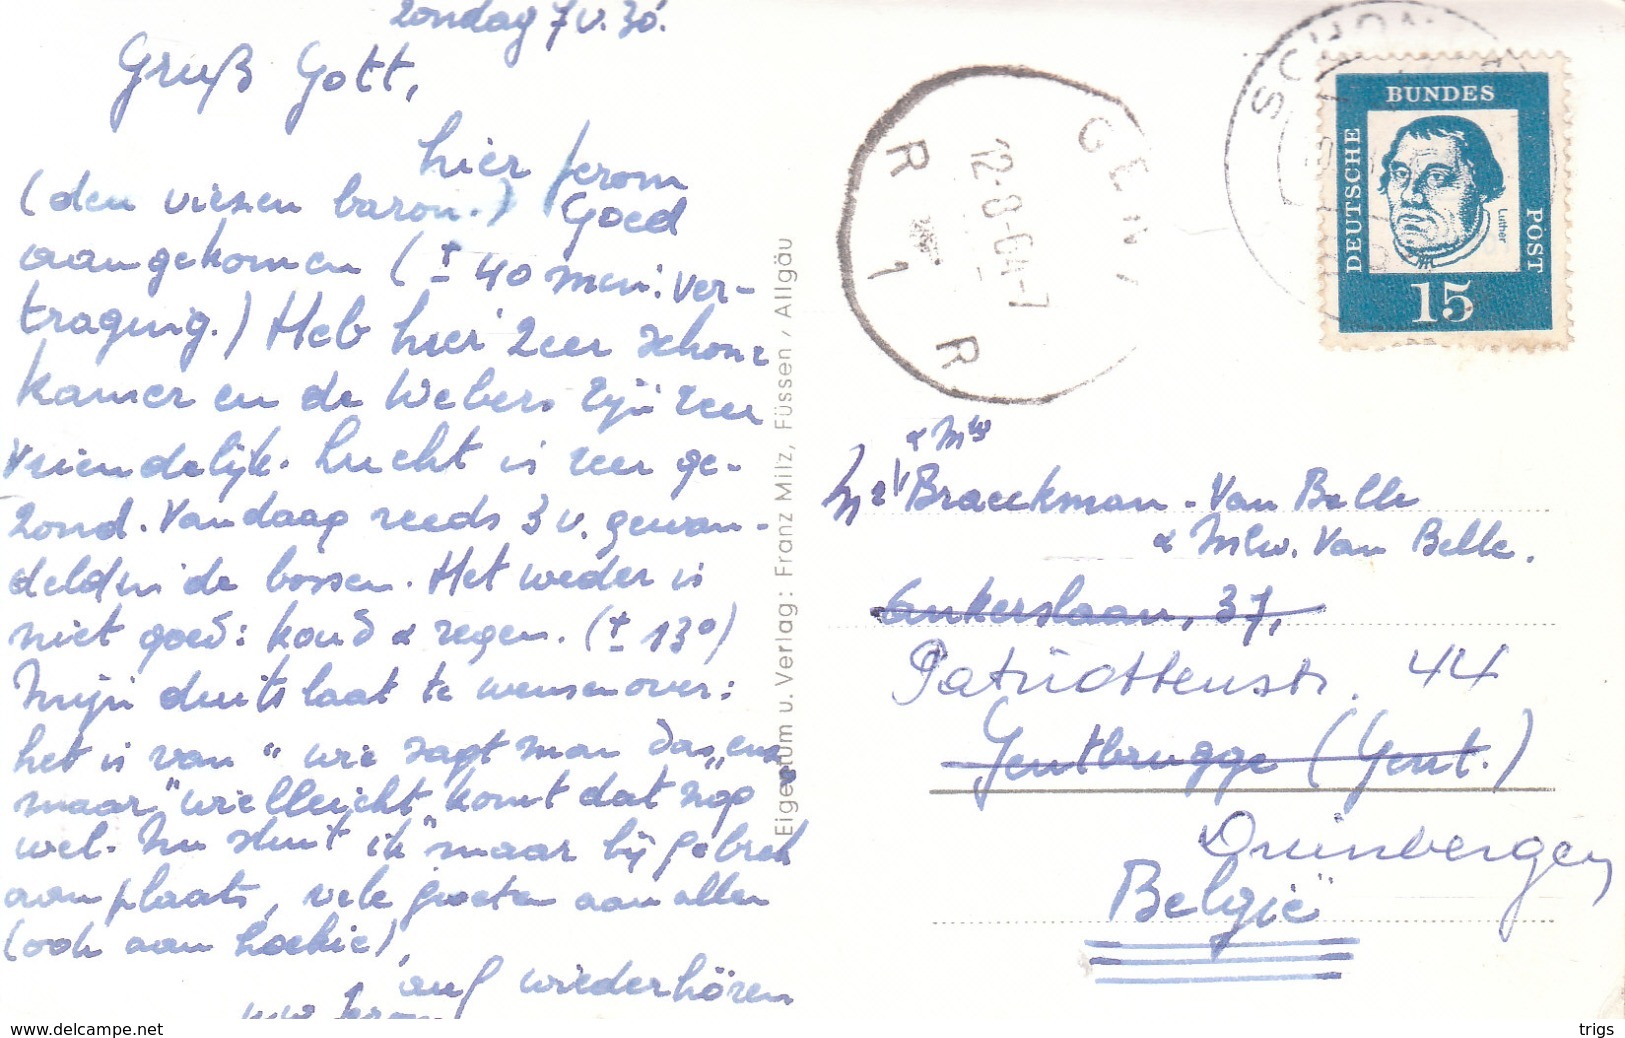 zondag 7 v. 30'.
Gruß Gott,
hier Jerom
(den viezen baron.) Goed
aangekomen (± 40 min: ver-
traging.) Heb hier zeer schone
kamer en de Webers zijn zeer
vriendelijk. Lucht is zeer ge-
zond. Vandaag reeds 3 u. gewan-
deld in de bossen. Het weder is
niet goed: koud & regen. (± 13°)
Mijn duits laat te wensen over:
het is van "wie sagt man das" en
maar "vielleicht" komt dat nog
wel. Nu sluit ik maar bij gebrek
aan plaats, vele groeten aan allen
(ook aan Loekie),
auf wiederhören
uw Jerom
Eigentum u. Verlag: Franz Milz, Füssen / Allgäu
GENT
12-8-61-7
R 1 R
SCHON
DEUTSCHE
BUNDES
POST
Luther
15
& Mw
Braeckman - Van Belle
& Mw. Van Belle.
Ankerslaan, 37,
Patriottenstr. 44
Gentbrugge (Gent.)
Duinbergen
België
www.delcampe.net
trigs